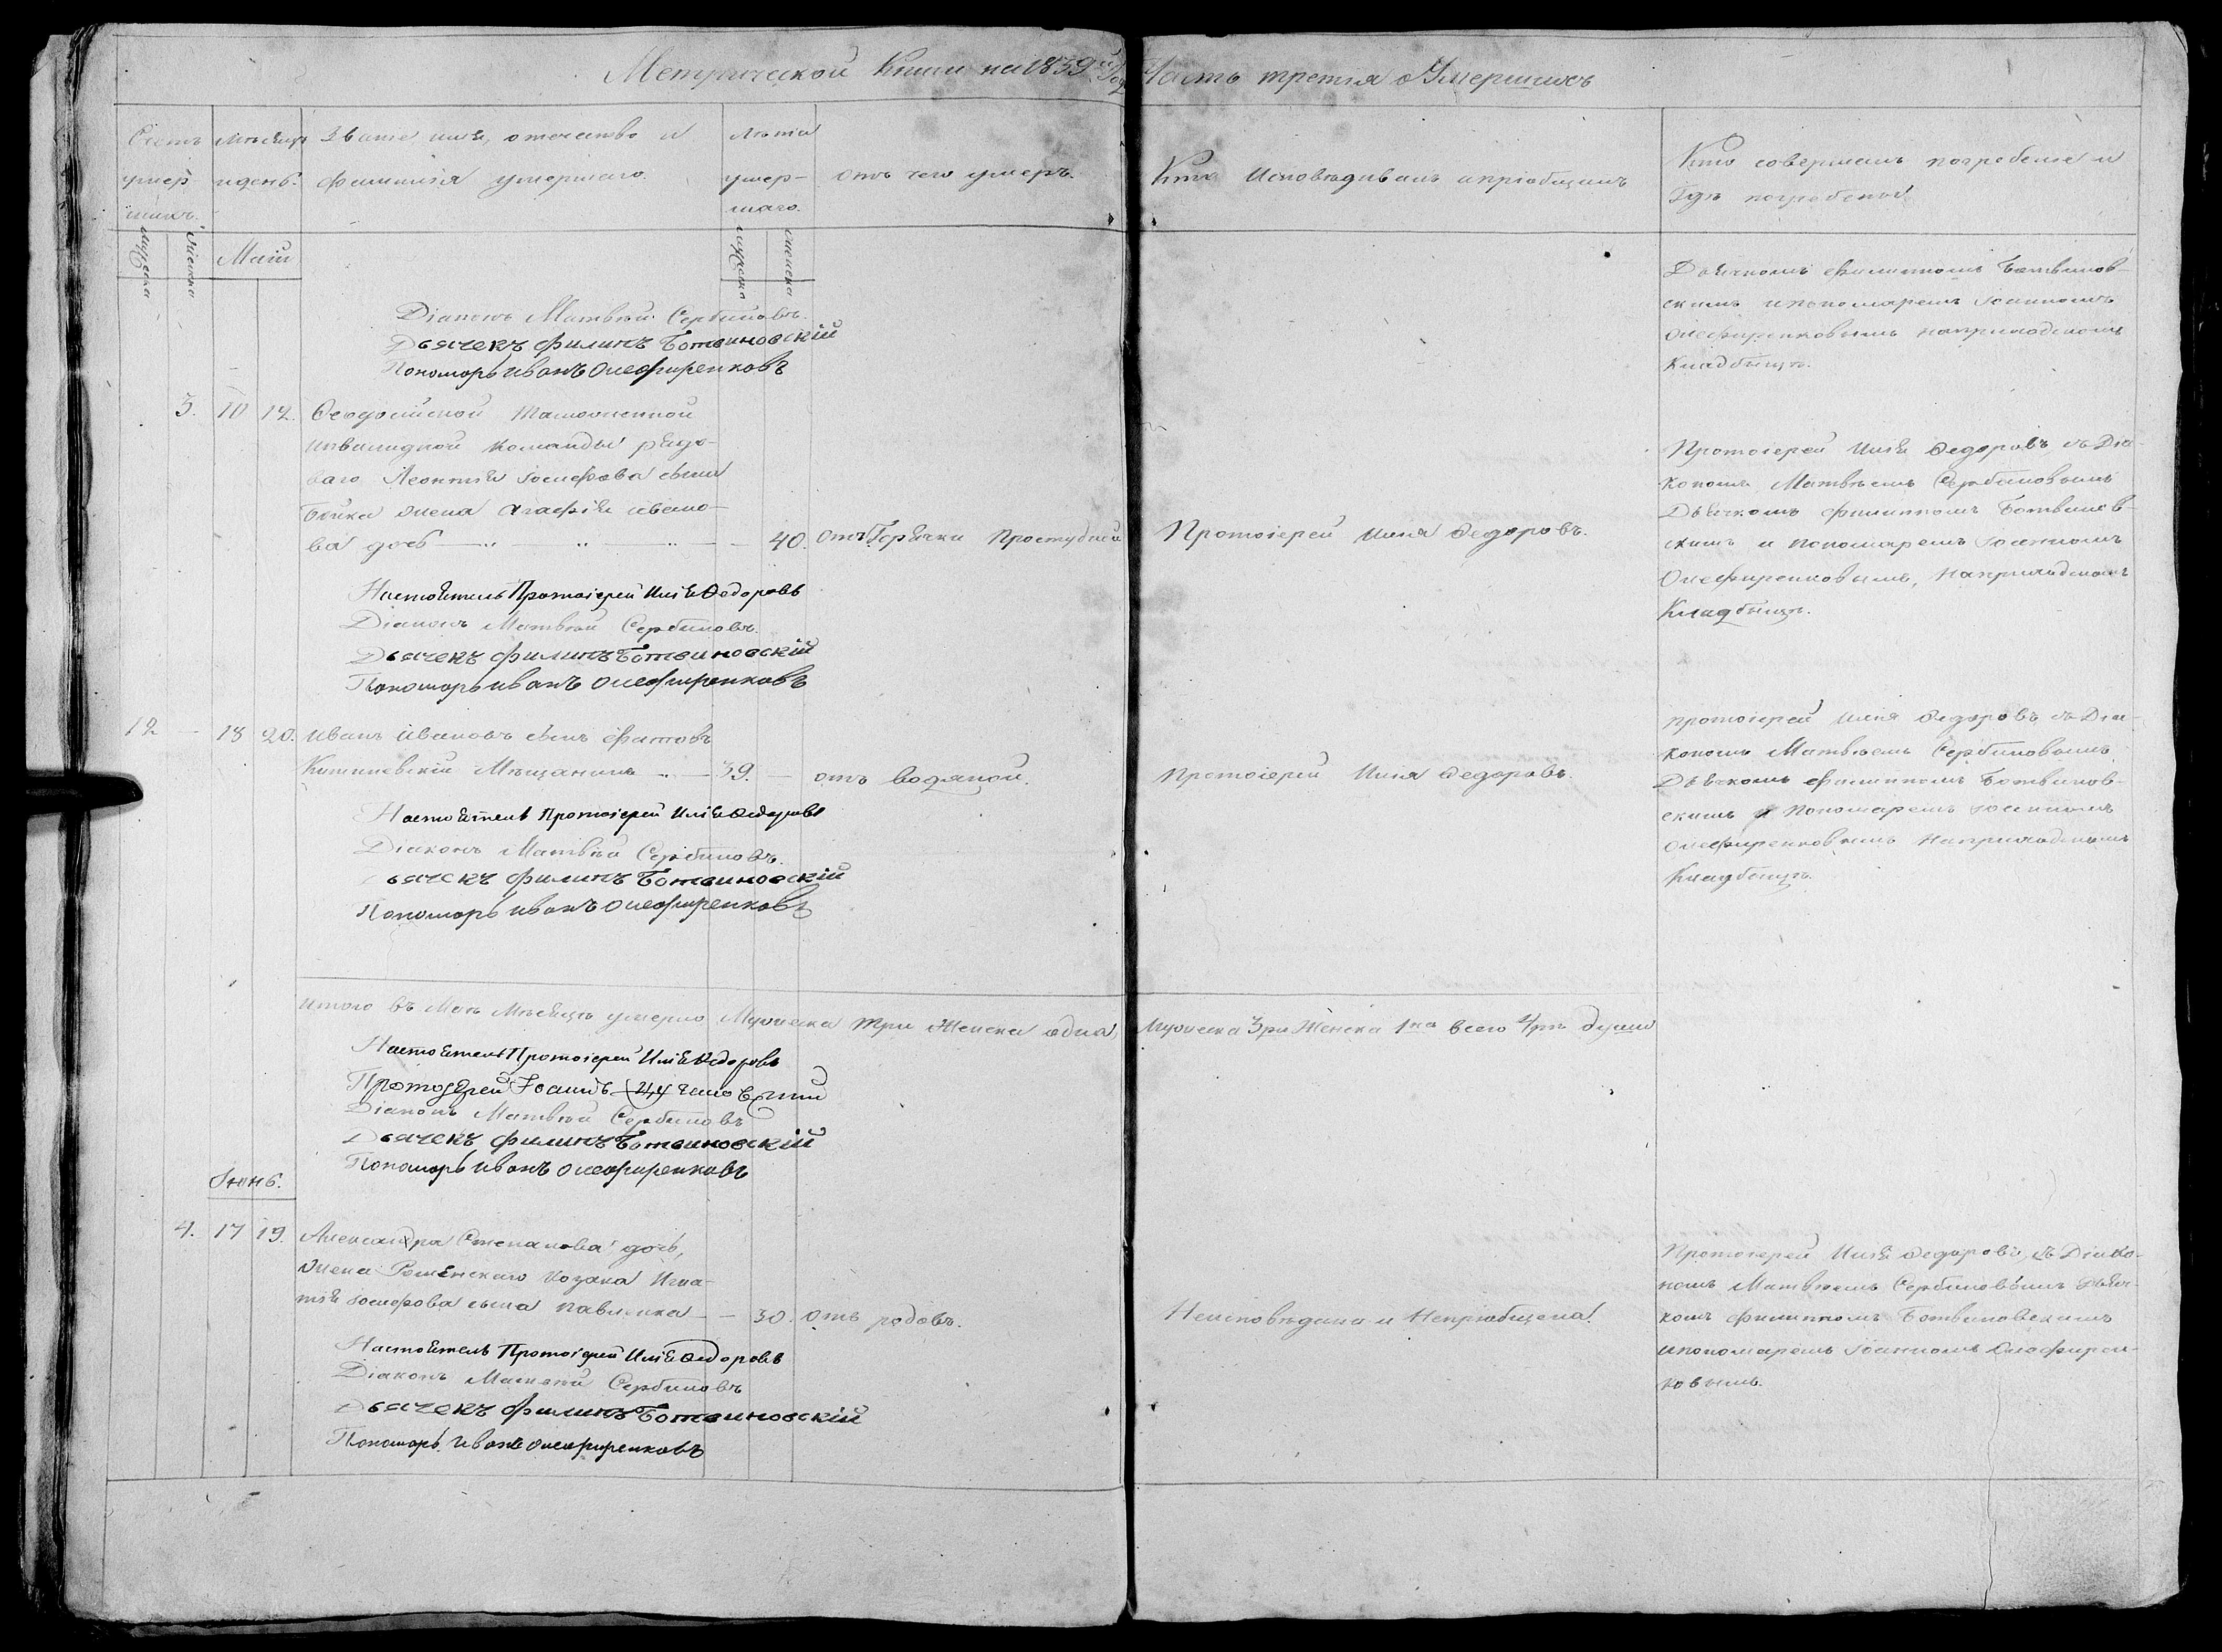 Метрической Книги на 1839й Годъ Часть третія о Умершихъ
Счетъ умер-шихъ.
Мѣсяцъ и день.
Званіе имя, отечество и
фамилія умершаго.
Лѣта
умер-
шаго.
отъ чего умеръ.
Кто Исповѣдывалъ и пріобщалъ
Кто совершалъ погребеніе и
Гдѣ погребены
мужеска
женска
Маій
мужеска
женска
Діаконъ Матвѣй Сербиновъ.
Дьячекъ филипъ Ботвиновскій
Пономарь иванъ Олефиренковъ
Дьячкомъ филиппомъ Ботвинов-
скимъ и пономаремъ Іоанномъ
Олефиренковымъ на приходскомъ
Кладбищѣ.
3. 10 12. Ѳеодосійской таможенной
инвалидной команды рядо-
ваго Леонтія Іосифова сына
Бойка жена Агафія ивано-
ва дочь 40. отъ Горячки Простудной
Протоіерей Илія Ѳедоровъ.
Протоіерей Илія Ѳедоровъ, съ Діа-
кономъ Матвѣемъ Сербиновымъ
Дьячкомъ филиппомъ Ботвинов-
скимъ и Пономаремъ Іоанномъ
Олефиренковымъ, на приходскомъ
Кладбищѣ.
Настоятель Протоіерей Илія Ѳедоровъ
Діаконъ Матвѣй Сербиновъ.
Дьячекъ филипъ Ботвиновскій
Пономарь иванъ Олефиренковъ
12 - 18 20. Иванъ Ивановъ сынъ
Кишиневскій Мѣщанинъ 39. - отъ водяной.
Протоіерей Илія Ѳедоровъ.
Протоіерей Илія Ѳедоровъ съ Діа-
кономъ Матвѣемъ Сербиновымъ
Дьячкомъ филиппомъ Ботвинов-
скимъ и Пономаремъ Іоанномъ
Олефиренковымъ на приходскомъ
Кладбищѣ.
Настоятель Протоіерей Илія Ѳедоровъ
Діаконъ Матвѣй Сербиновъ.
Дьячекъ филипъ Ботвиновскій
Пономарь иванъ Олефиренковъ
Итого въ Маѣ Мѣсяцѣ умерло Мужеска три Женска одна, Мужеска 3ри Женска 1на всего 4ре души
Настоятель Протоіерей Илія Ѳедоровъ
Протоіерей Іоаннъ
Діаконъ Матвѣй Сербиновъ
Дьячекъ филипъ Ботвиновскій
Пономарь иванъ Олефиренковъ
Іюнь.
4. 17 19. Александра Степанова дочь,
жена Роменскаго козака Игна-
тія Іосифова сына Павленка - - 30. отъ родовъ.
Неисповѣдана и Непріобщена.
Протоіерей Илія Ѳедоровъ, съ Діако-
номъ Матвѣемъ Сербиновымъ Дьяч-
комъ филиппомъ Ботвиновскимъ
и пономаремъ Іоанномъ Олефирен-
ковымъ.
Настоятель Протоіерей Илія Ѳедоровъ
Діаконъ Матвѣй Сербиновъ
Дьячекъ филипъ Ботвиновскій
Пономарь Иванъ Олефиренковъ